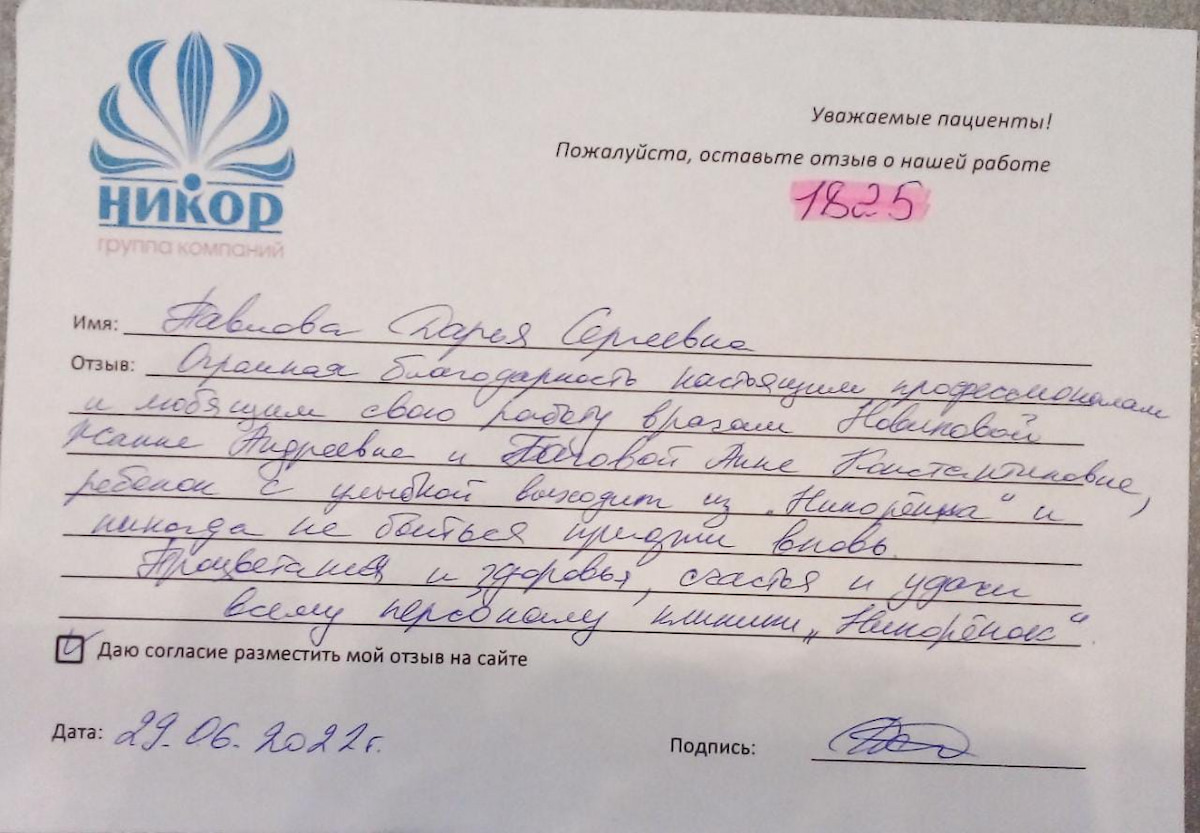 НИКОР
группа компаний
Уважаемые пациенты!
Пожалуйста, оставьте отзыв о нашей работе
1825
Имя: Павлова Дарья Сергеевна
Отзыв: Огромная благодарность настоящим профессионалам
и любящим свою работу врачам Новиковой
Жанне Андреевне и Анне Константиновне,
ребенок с улыбкой выходит из „Никорёнка“ и
никогда не боиться придти вновь.
Процветания и здоровья, счастья и удачи
всему персоналу клиники „Никорёнок“.
Даю согласие разместить мой отзыв на сайте
Дата: 29.06.2022г.
Подпись: